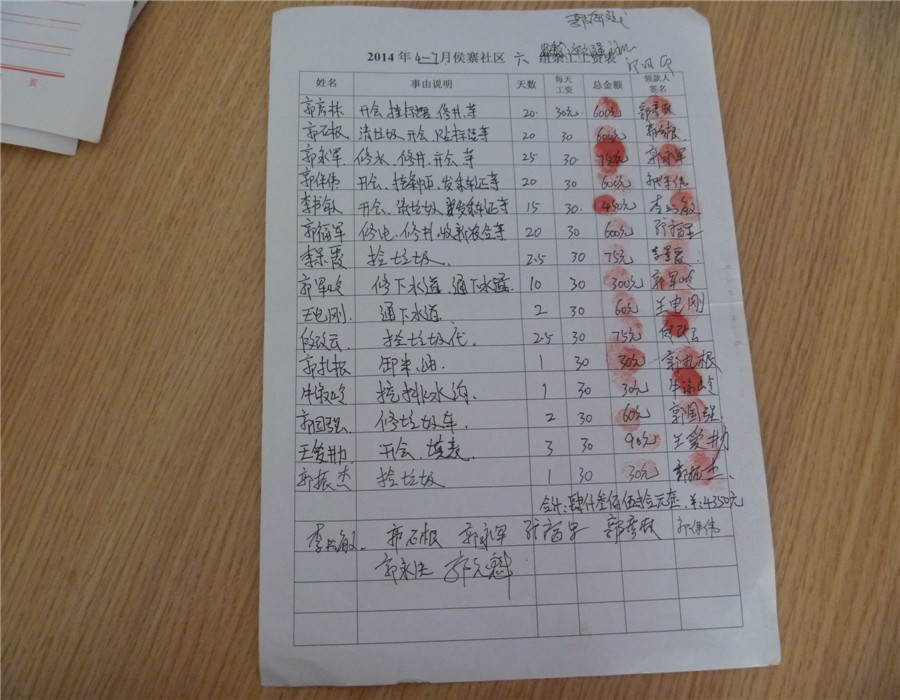 2014年4-7月侯寨社区 六 组杂工工资表
姓名 事由说明 天数 每天工资 总金额 领款人签名
开会、 修井等 20 30元 600元
郭石根 清垃圾、开会、 等 20 30 600元 郭石根
郭永军 修水、修井、开会等 25 30 750元 郭永军
郭保伟 开会、 等 20 30 600元 郭保伟
李书敏 开会、清垃圾、 等 15 30 450元 李书敏
郭福军 修电、修井、收新农合等 20 30 600元
李景霞 捡垃圾、 2.5 30 75元 李景霞
郭军岭 修下水道、通下水道 10 30 300元 郭军岭
王电刚 通下水道、 2 30 60元 王电刚
捡垃圾代、 2.5 30 75元
郭扎根 卸柴油、 1 30 30元 郭扎根
挖排水沟、 1 30 30元
郭国强 修垃圾车、 2 30 60元 郭国强
王爱勤 开会、填表、 3 30 90元 王爱勤
郭振杰 捡垃圾 1 30 30元 郭振杰
合计:肆仟叁佰伍拾元整 ¥:4350元
李书敏 郭石根 郭永军 郭保伟
郭元魁
页